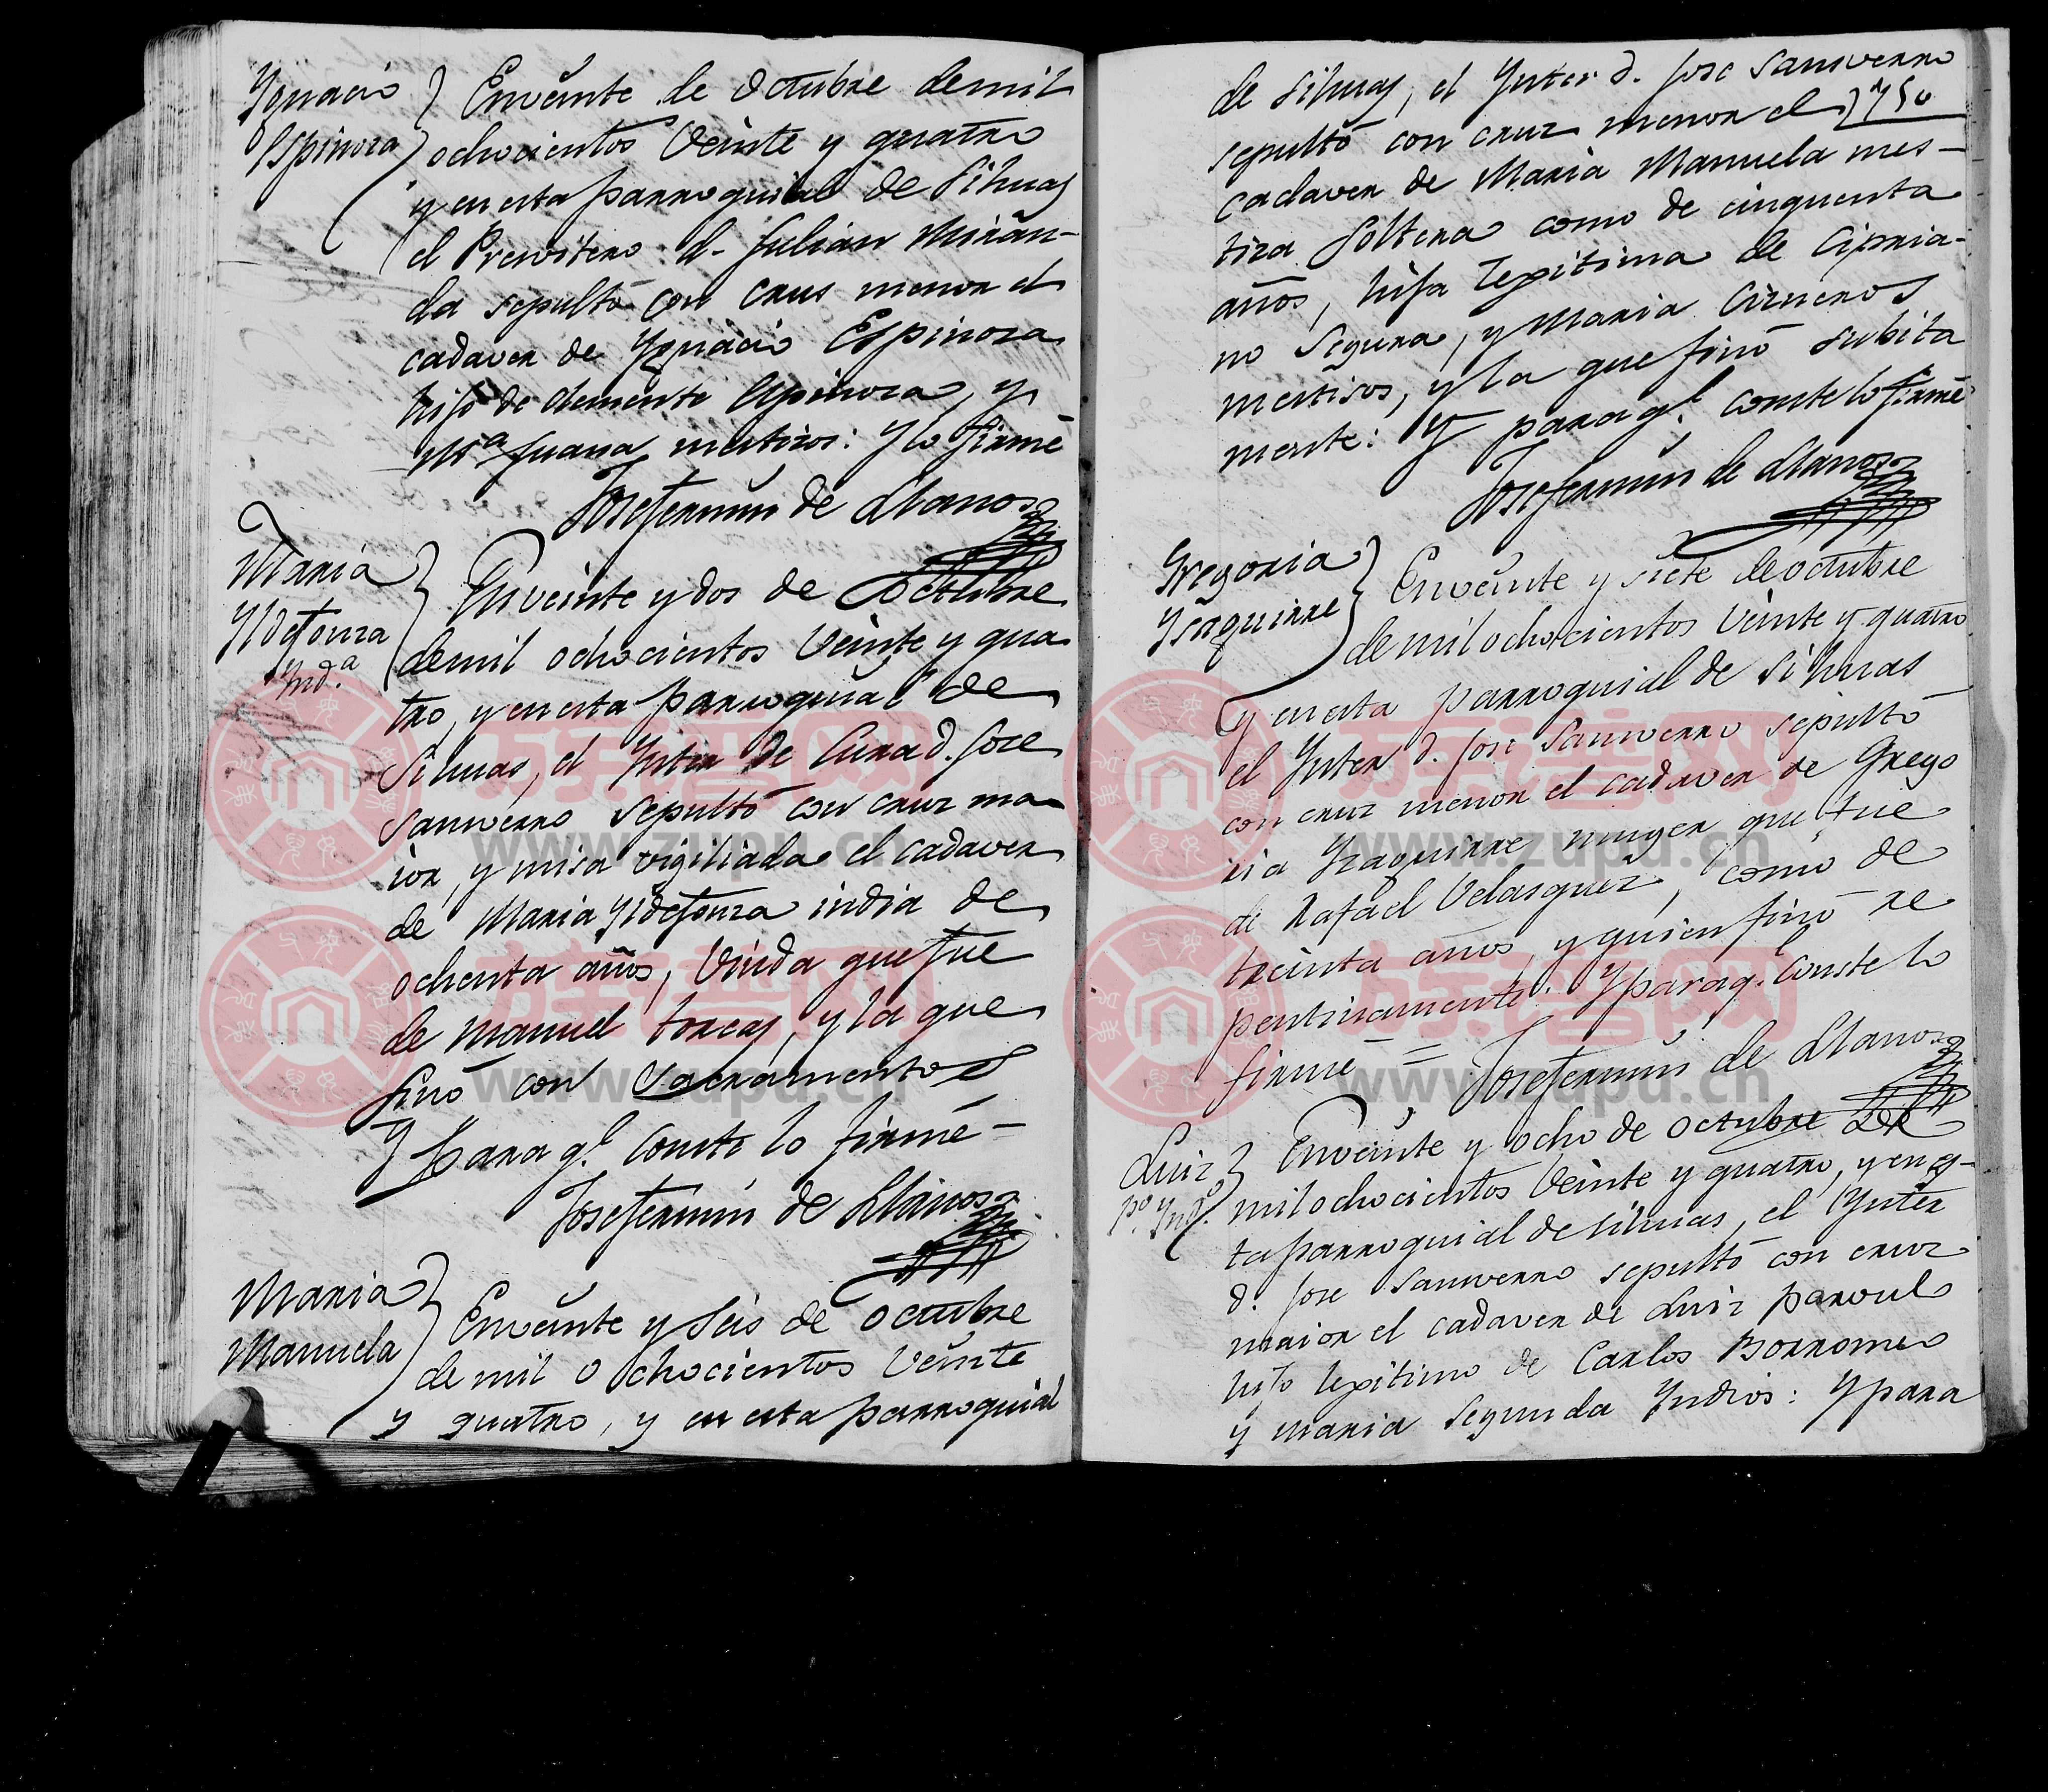 Ygnacio
Espinoza
En veinte de Octubre de mil
ochocientos Veinte y quatro
y en esta parroquial de Sihuas
el Presvitero d. Julian Miran-
da sepultó con crus menor el
cadaver de Ygnacio Espinoza
hijo de Clemente Espinoza, y
Mª Juana mestizos: Y lo firmé
Jose Fermin de Llanos
Maria
Yldefonza
Ynd.ª
En veinte y dos de Octubre
de mil ochocientos Veinte y qua
tro, y en esta parroquial de
Sihuas, el Ynter de Cura d. Jose
Sanverro sepultó con cruz ma-
ior, y misa vigiliada el cadaver
de Maria Yldefonza india de
ochenta años, Viuda que fue
de Manuel Torres, y la que
finó con Sacramentos
Y para q.e conste lo firmé -
Jose Fermin de Llanos
Maria
Manuela
En veinte y seis de octubre
de mil ochocientos Veinte
y quatro, y en esta parroquial
de Sihuas, el Ynter d. Jose Sanverro
sepultó con cruz menor el
150
cadaver de Maria Manuela mes-
tiza Soltera como de cinquenta
años, hija legitima de Cipria-
no Segura, y Maria Cisneros
mestisos, y la que finó subita
mente: Y para q.e conste lo firmé
Jose Fermin de Llanos
Gregoria
Ysaguirre
En veinte y siete de octubre
de mil ochocientos Veinte y quatro
y en esta parroquial de Sihuas
el Ynter d. Jose Sanverro sepultó
con cruz menor el cadaver de Grego
ria Yzaguirre muger que fue
de Rafael Velasquez, como de
treinta años, y quien finó re
pentinamente. Y para q.e conste lo
firmé = Jose Fermin de Llanos
Luiz
p.º Ynd.º
En veinte y ocho de octubre de
mil ochocientos Veinte y quatro, y en es-
ta parroquial de Sihuas, el Ynter
d. Jose Sanverro sepultó con cruz
maior el cadaver de Luiz parvulo
hijo legitimo de Carlos Borromeo
y Maria Segunda Yndios: Y para
族谱网
www.zupu.cn
族谱网
www.zupu.cn
族谱网
www.zupu.cn
族谱网
www.zupu.cn